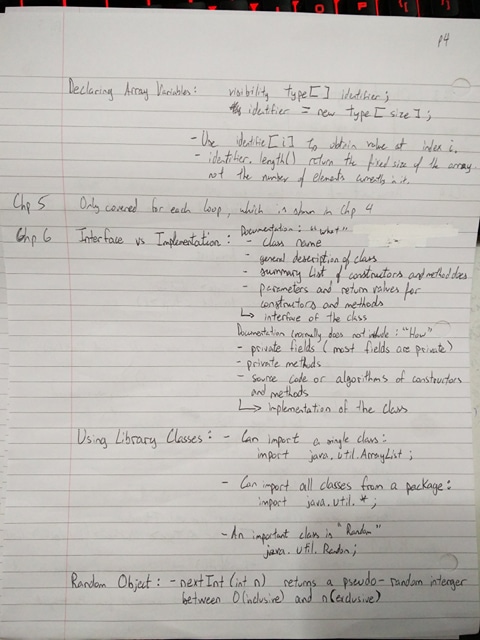 p4
Declaring Array Variables: visibility type[] identifier;
identifier = new type[size];
- Use identifie[i] to obtain value at index i.
- identifier.length() return the fixed size of the array
not the number of elements currently in it.
Chp 5 Only covered for each loop, which is shown in Chp 4
Chp 6 Interface vs Implementation: Documentation: "What"
- class name
- general description of class
- summary list of constructors and method decs
- parameters and return values for
constructors and methods
↳ interface of the class
Documentation normally does not include: "How"
- private fields (most fields are private)
- private methods
- source code or algorithms of constructors
and methods
↳ implementation of the class
Using Library Classes: - Can import a single class:
import java.util.ArrayList;
- Can import all classes from a package:
import java.util.*;
- An important class is "Random"
java.util.Random;
Random Object: - nextInt(int n) returns a pseudo-random interger
between 0(inclusive) and n(exclusive)